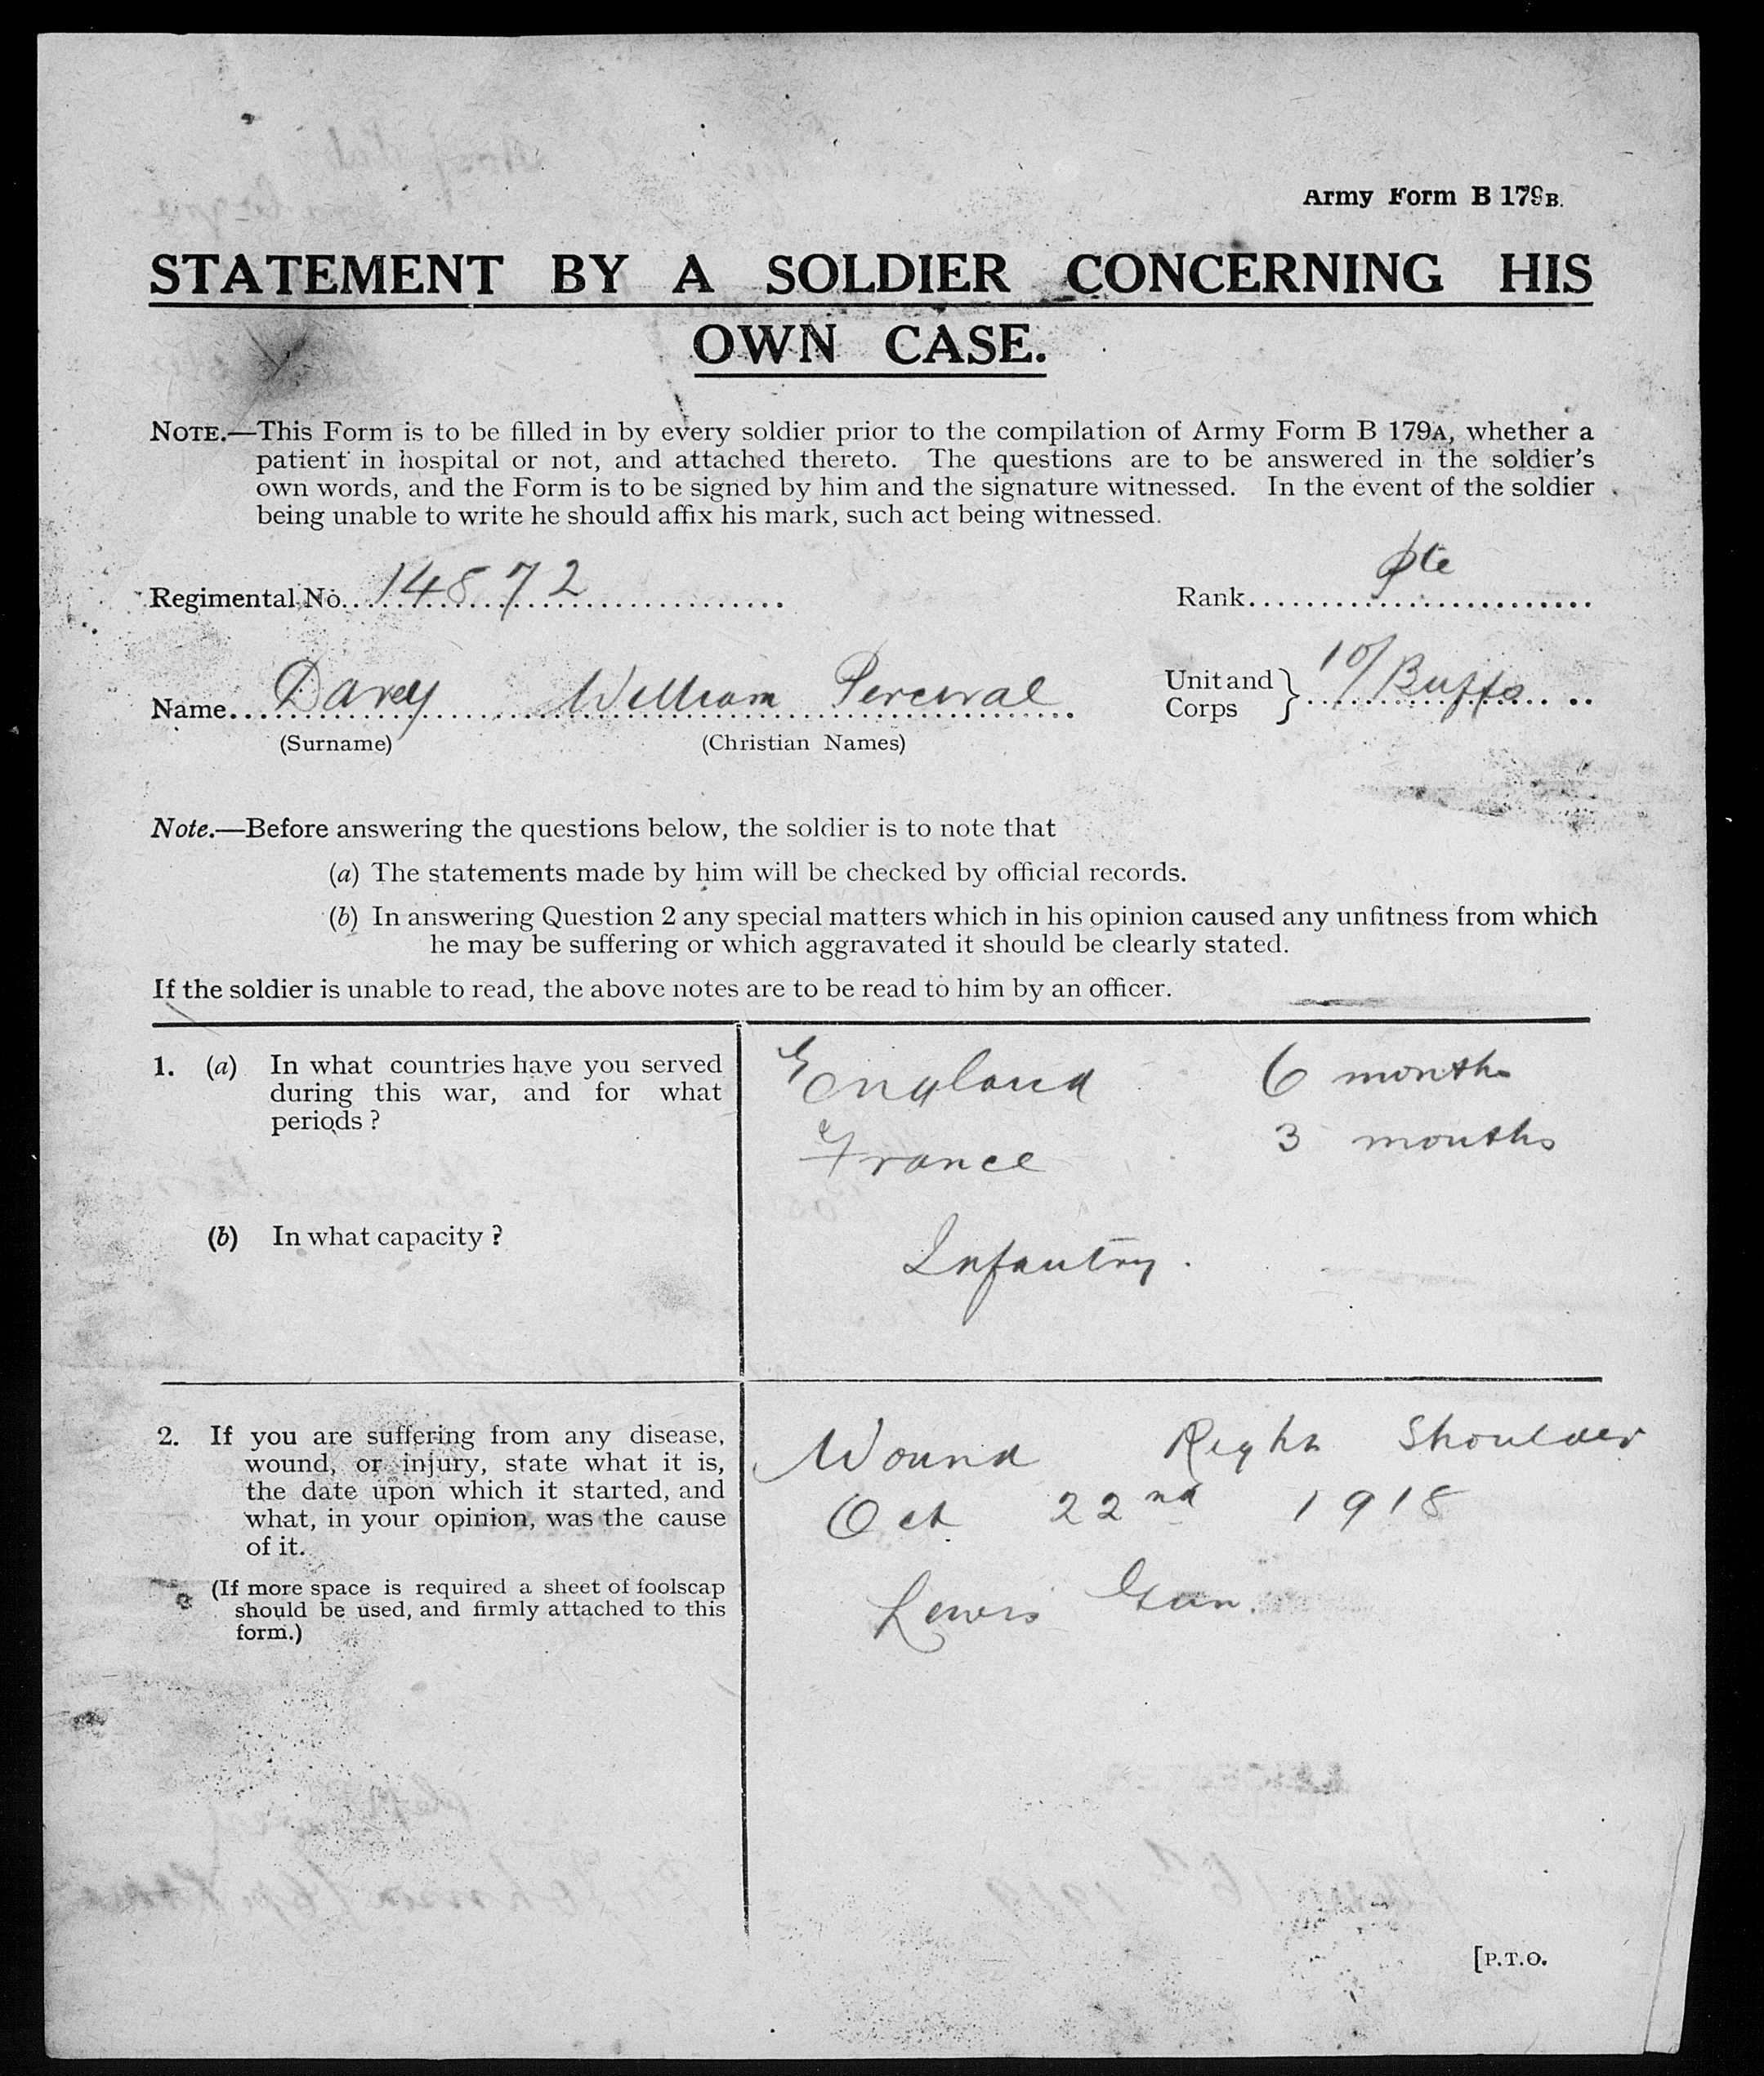 Army Form B 179B.
STATEMENT BY A SOLDIER CONCERNING HIS
OWN CASE.
NOTE.—This Form is to be filled in by every soldier prior to the compilation of Army Form B 179A, whether a
patient in hospital or not, and attached thereto. The questions are to be answered in the soldier's
own words, and the Form is to be signed by him and the signature witnessed. In the event of the soldier
being unable to write he should affix his mark, such act being witnessed.
Regimental No. 14872 Rank Pte
Name Davey William Percival Unit and Corps } 10/Buffs
(Surname) (Christian Names)
Note.—Before answering the questions below, the soldier is to note that
(a) The statements made by him will be checked by official records.
(b) In answering Question 2 any special matters which in his opinion caused any unfitness from which
he may be suffering or which aggravated it should be clearly stated.
If the soldier is unable to read, the above notes are to be read to him by an officer.
1. (a) In what countries have you served
during this war, and for what
periods ?
England 6 months
France 3 months
(b) In what capacity ?
Infantry.
2. If you are suffering from any disease,
wound, or injury, state what it is,
the date upon which it started, and
what, in your opinion, was the cause
of it.
(If more space is required a sheet of foolscap
should be used, and firmly attached to this
form.)
Wound Right Shoulder
Oct 22nd 1918
Lewis Gun.
[P.T.O.